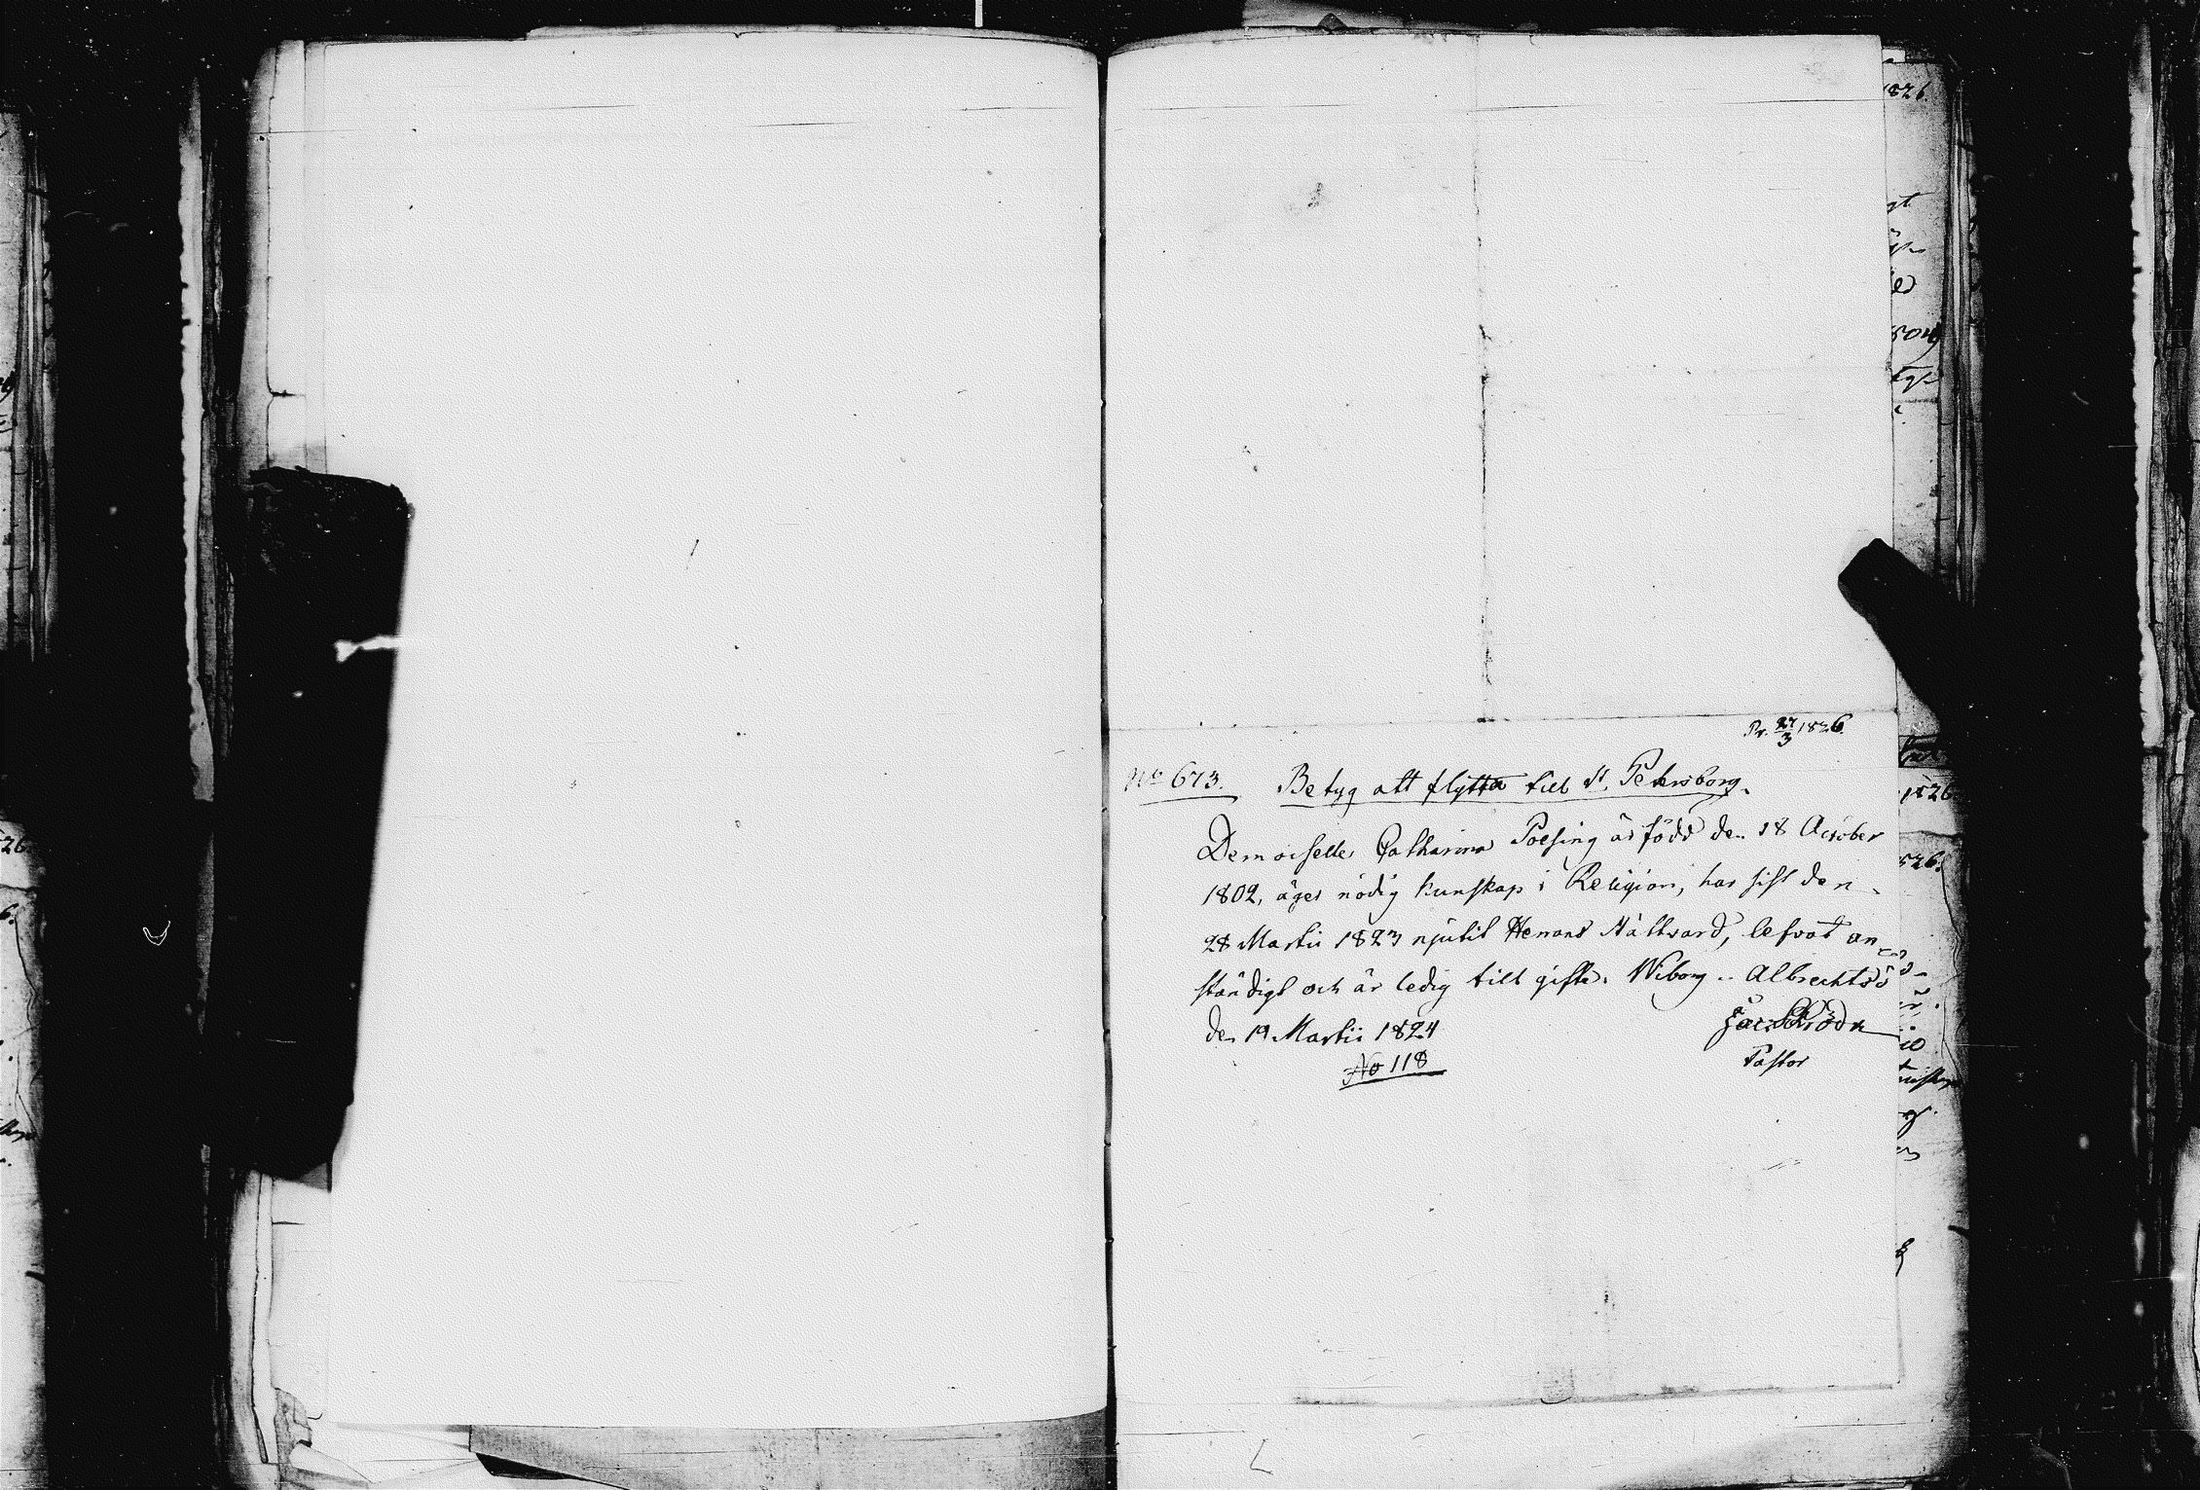 Pr. 27/3 1826
No 673. Betyg att flytta till St. Petersborg.
Demoiselle Catharina Poesing är född den 18 October
1802, äger nödig kunskap i Religion, har sist den
28 Martii 1823 njutit Herrans Nattvard, lefvat an-
ständigt och är ledig till gifte. Wiborg Albrechtsö
den 19 Martii 1824
No 118
Pastor